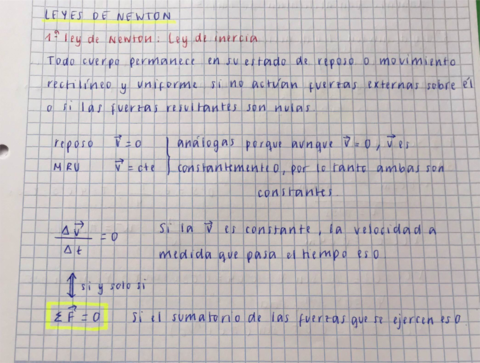 LEYES DE NEWTON
1ª ley de NEWTON: Ley de inercia
Todo cuerpo permanece en su estado de reposo o movimiento
rectilíneo y uniforme si no actúan fuerzas externas sobre él
o si las fuerzas resultantes son nulas
reposo v⃗=0 } análogas porque aunque v⃗=0, v⃗ es
MRU v⃗=cte } constantemente 0, por lo tanto ambas son
constantes
Δv⃗/Δt = 0 Si la v⃗ es constante, la velocidad a
medida que pasa el tiempo es 0
⇕ si y solo si
ΣF⃗=0 Si el sumatorio de las fuerzas que se ejercen es 0